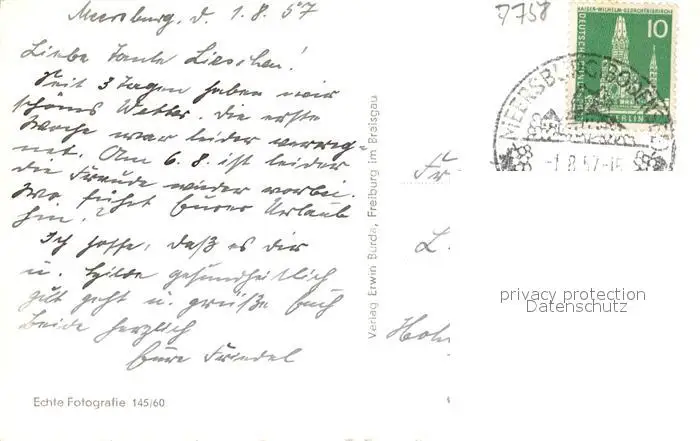 Meersburg, d. 1.8.57
Liebe Tante Lieschen!
Seit 3 Tagen haben wir
schönes Wetter. Die erste
Woche war leider verreg-
net. Am 6.8. ist leider
die Freude wieder vorbei.
Wo führt Eurer Urlaub
hin?
Ich hoffe, daß es dir
u. Hilde gesundheitlich
gut geht u. grüße Euch
beide herzlich
Eure Friedel
Echte Fotografie 145/60
Verlag Erwin Burda, Freiburg im Breisgau
7758
KAISER-WILHELM-GEDÄCHTNISKIRCHE
10
DEUTSCHE BUNDESPOST
BERLIN
MEERSBURG (BODENSEE)
-1.8.57-15
Fr
L.
Hohn
privacy protection
Datenschutz